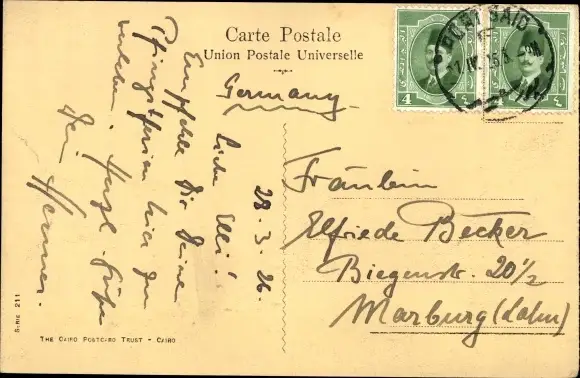 Carte Postale
Union Postale Universelle
Germany.
28.3.26.
Liebe Elli!
Empfehle Dir Deine
Pfingstferien hier zu
verleben. Herzl. Grüße
Dein Werner.
Fräulein
Elfriede Becker
Biegenstr. 20½
Marburg (Lahn)
PORT SAID
4
٤
SERIE 211
THE CAIRO POSTCARD TRUST - CAIRO